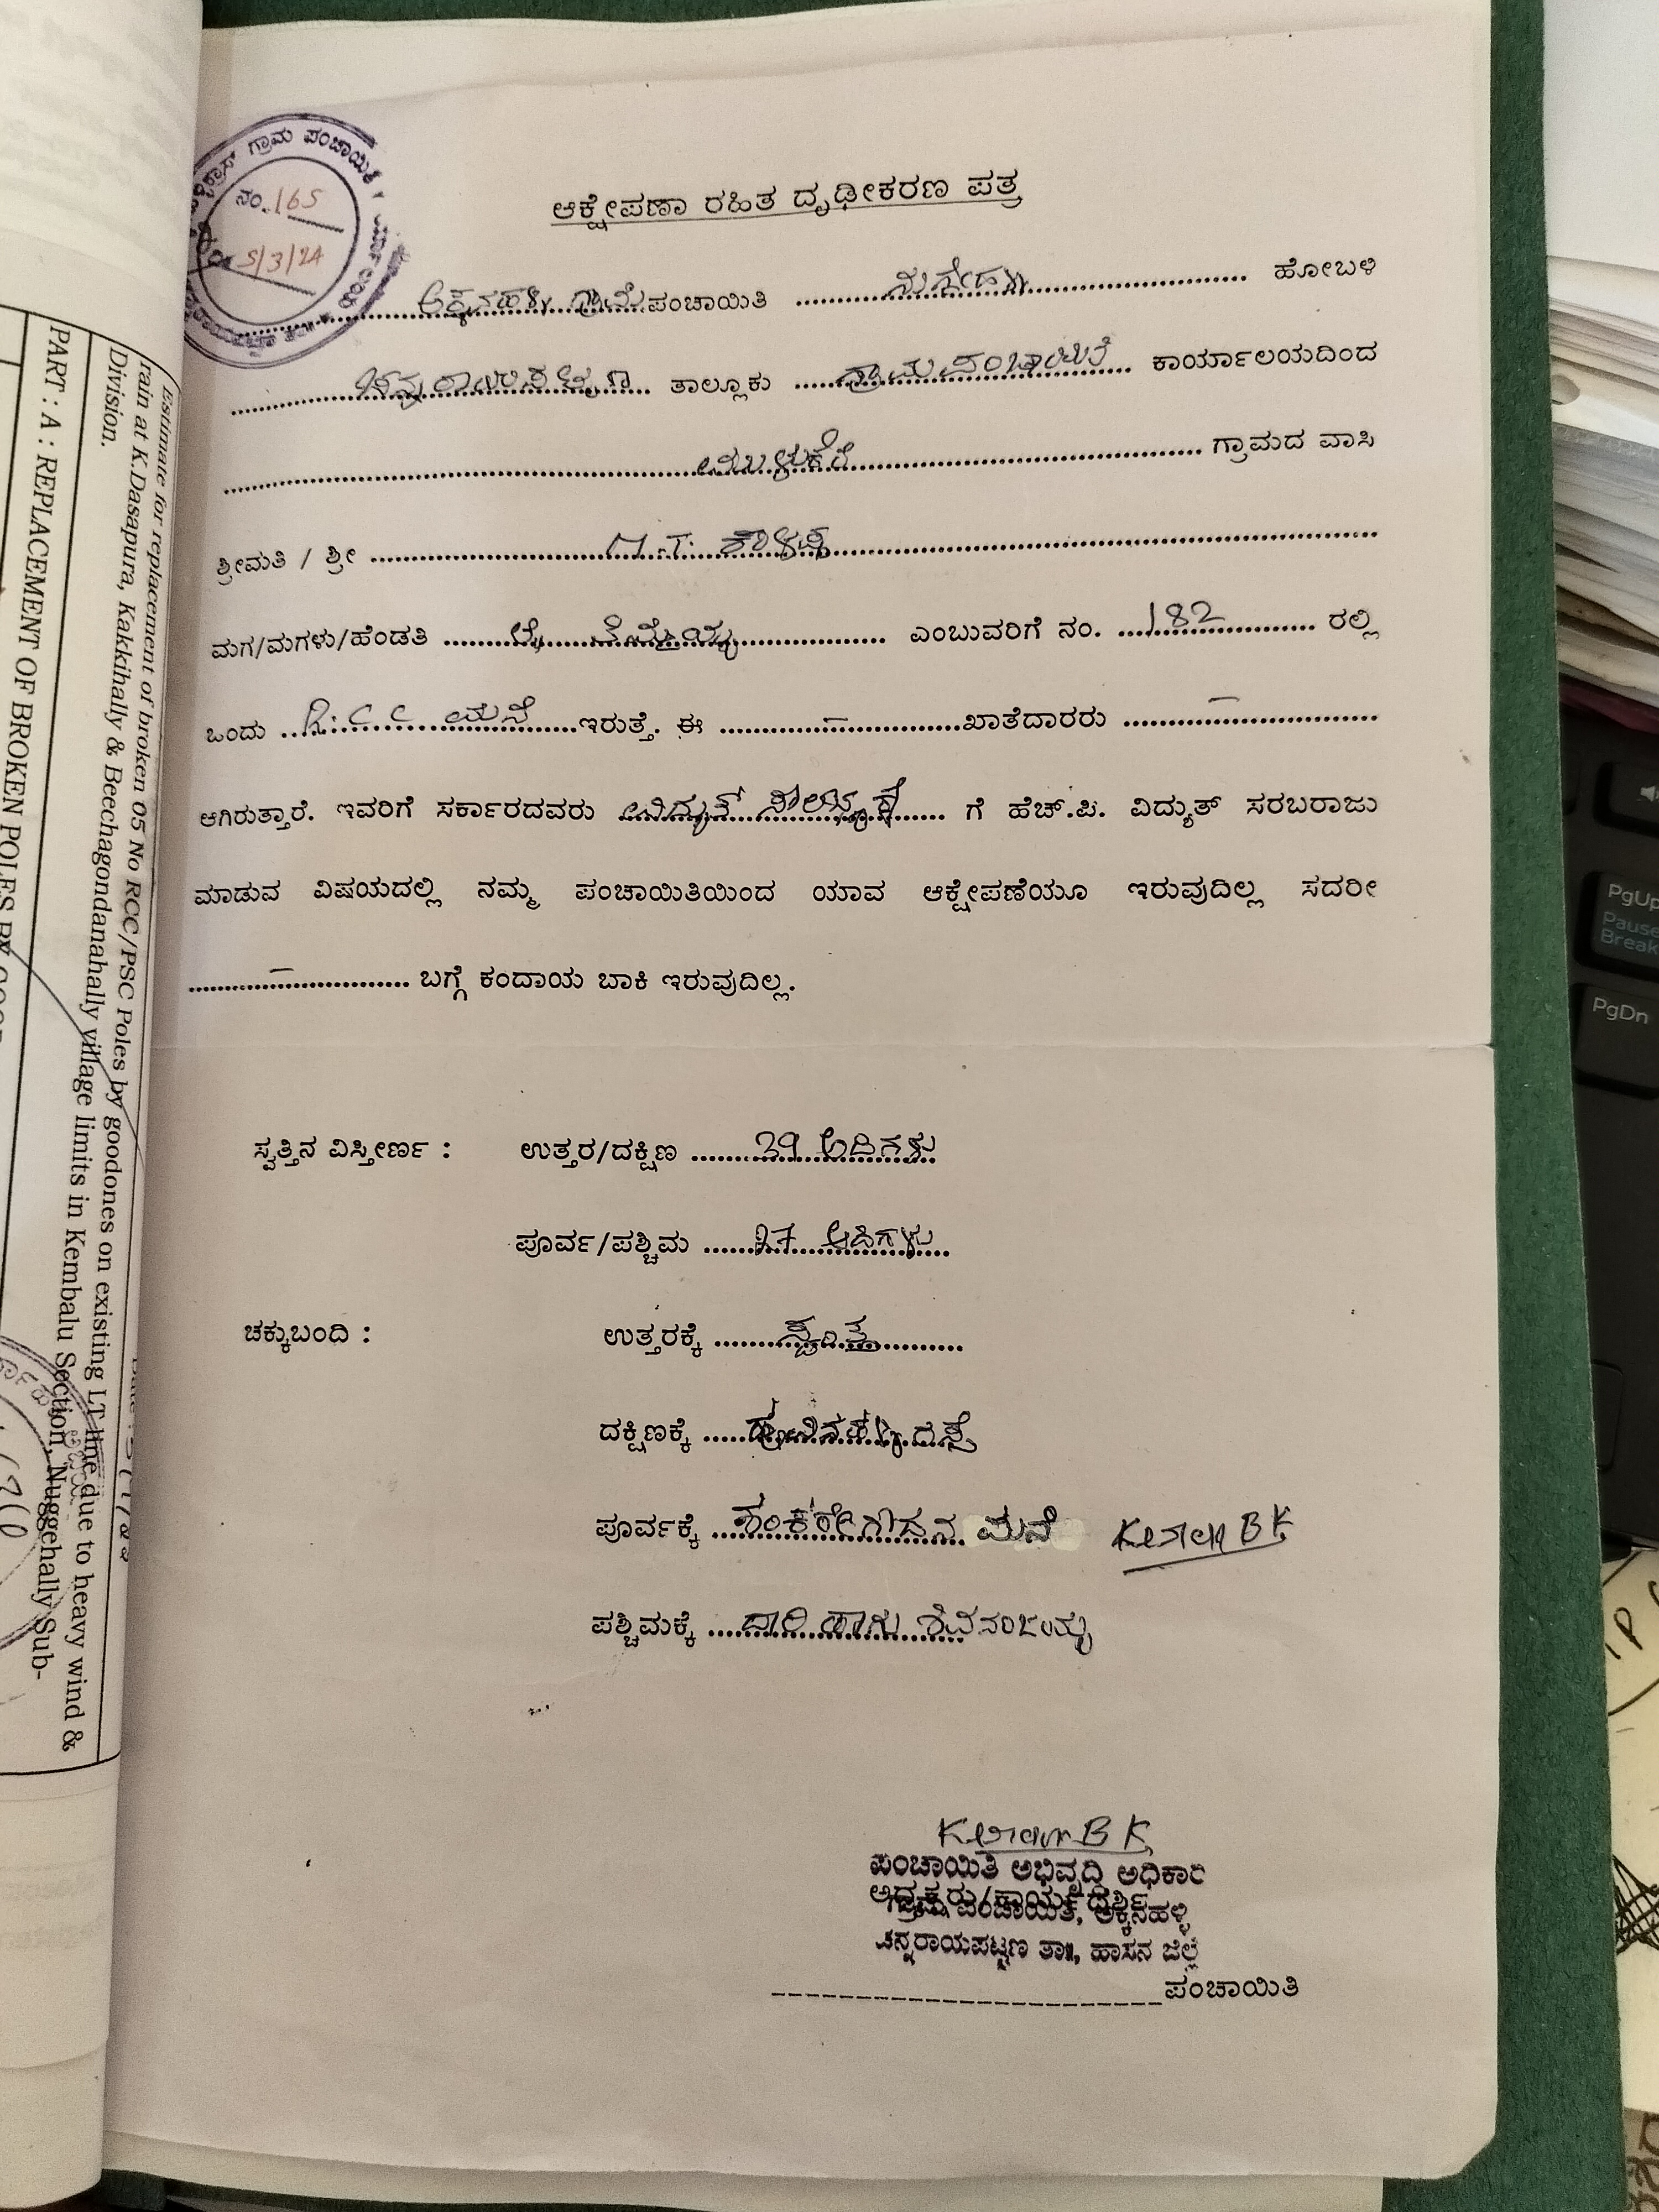 ಗ್ರಾಮ ಪಂಚಾಯಿತಿ
ನಂ. 165
5/3/24
ಆಕ್ಷೇಪಣಾ ರಹಿತ ದೃಢೀಕರಣ ಪತ್ರ
ಅಕ್ಕನಹಳ್ಳಿ ಗ್ರಾಮ ಪಂಚಾಯಿತಿ ನುಗ್ಗೇಹಳ್ಳಿ ಹೋಬಳಿ
ಚನ್ನರಾಯಪಟ್ಟಣ ತಾಲ್ಲೂಕು ಗ್ರಾಮ ಪಂಚಾಯಿತಿ ಕಾರ್ಯಾಲಯದಿಂದ
ಗ್ರಾಮದ ವಾಸಿ
ಶ್ರೀಮತಿ / ಶ್ರೀ
ಮಗ/ಮಗಳು/ಹೆಂಡತಿ ಎಂಬುವರಿಗೆ ನಂ. 182 ರಲ್ಲಿ
ಒಂದು R.C.C ಮನೆ ಇರುತ್ತೆ. ಈ – ಖಾತೆದಾರರು –
ಆಗಿರುತ್ತಾರೆ. ಇವರಿಗೆ ಸರ್ಕಾರದವರು ವಿದ್ಯುತ್ ಗೆ ಹೆಚ್.ಪಿ. ವಿದ್ಯುತ್ ಸರಬರಾಜು
ಮಾಡುವ ವಿಷಯದಲ್ಲಿ ನಮ್ಮ ಪಂಚಾಯಿತಿಯಿಂದ ಯಾವ ಆಕ್ಷೇಪಣೆಯೂ ಇರುವುದಿಲ್ಲ ಸದರೀ
– ಬಗ್ಗೆ ಕಂದಾಯ ಬಾಕಿ ಇರುವುದಿಲ್ಲ.
ಸ್ವತ್ತಿನ ವಿಸ್ತೀರ್ಣ : ಉತ್ತರ/ದಕ್ಷಿಣ 29 ಅಡಿಗಳು
ಪೂರ್ವ/ಪಶ್ಚಿಮ 27 ಅಡಿಗಳು
ಚಕ್ಕುಬಂದಿ : ಉತ್ತರಕ್ಕೆ
ದಕ್ಷಿಣಕ್ಕೆ
ಪೂರ್ವಕ್ಕೆ ಶಂಕರೇಗೌಡನ ಮನೆ
ಪಶ್ಚಿಮಕ್ಕೆ ದಾರಿ ಹಾಗು ಶಿವನಂಜಯ್ಯ
ಪಂಚಾಯಿತಿ ಅಭಿವೃದ್ಧಿ ಅಧಿಕಾರಿ
ಅಧ್ಯಕ್ಷರು/ಕಾರ್ಯದರ್ಶಿ
ಗ್ರಾಮ ಪಂಚಾಯಿತಿ, ಅಕ್ಕನಹಳ್ಳಿ
ಚನ್ನರಾಯಪಟ್ಟಣ ತಾ॥, ಹಾಸನ ಜಿಲ್ಲೆ
ಪಂಚಾಯಿತಿ
Estimate for replacement of broken 05 No RCC/PSC Poles by goodones on existing LT line due to heavy wind &
rain at K.Dasapura, Kakkihally & Beechagondanahally village limits in Kembalu Section, Nuggehally Sub-
Division.
PART : A : REPLACEMENT OF BROKEN POLES BY
PgUp
Pause
Break
PgDn